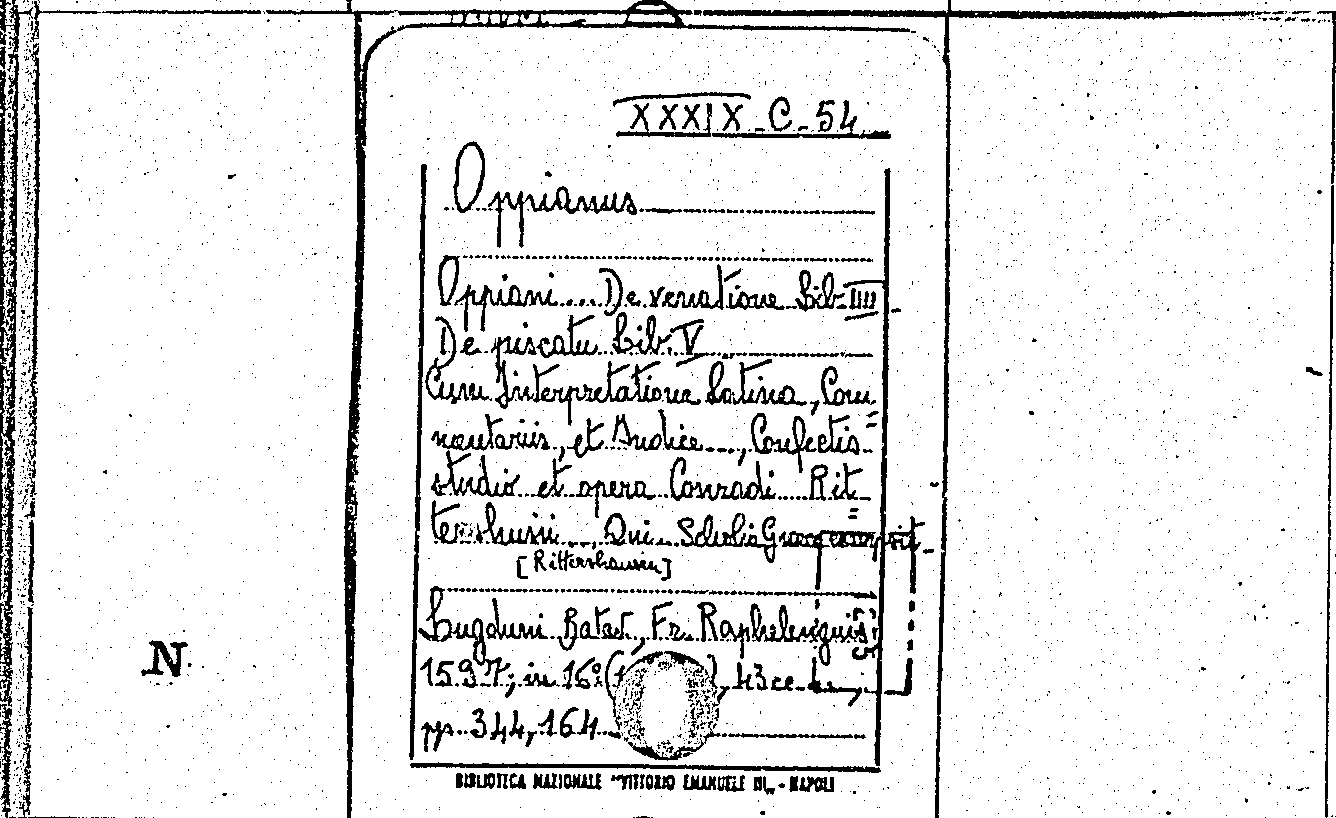 XXXIX-C-54
Oppianus
Oppiani... De venatione Lib. IIII
De piscatu Lib. V
Cum Interpretatione Latina, Com=
mentariis, et Indice..., Confectis
studio et opera Conradi Rit=
tershusii..., Qui... Scholia Graeca
[Rittershausen]
Lugduni Batav., Fr. Raphelengius,
1597; in 16° 43 cc.
pp. 344, 164
BIBLIOTECA NAZIONALE "VITTORIO EMANUELE III" - NAPOLI
N